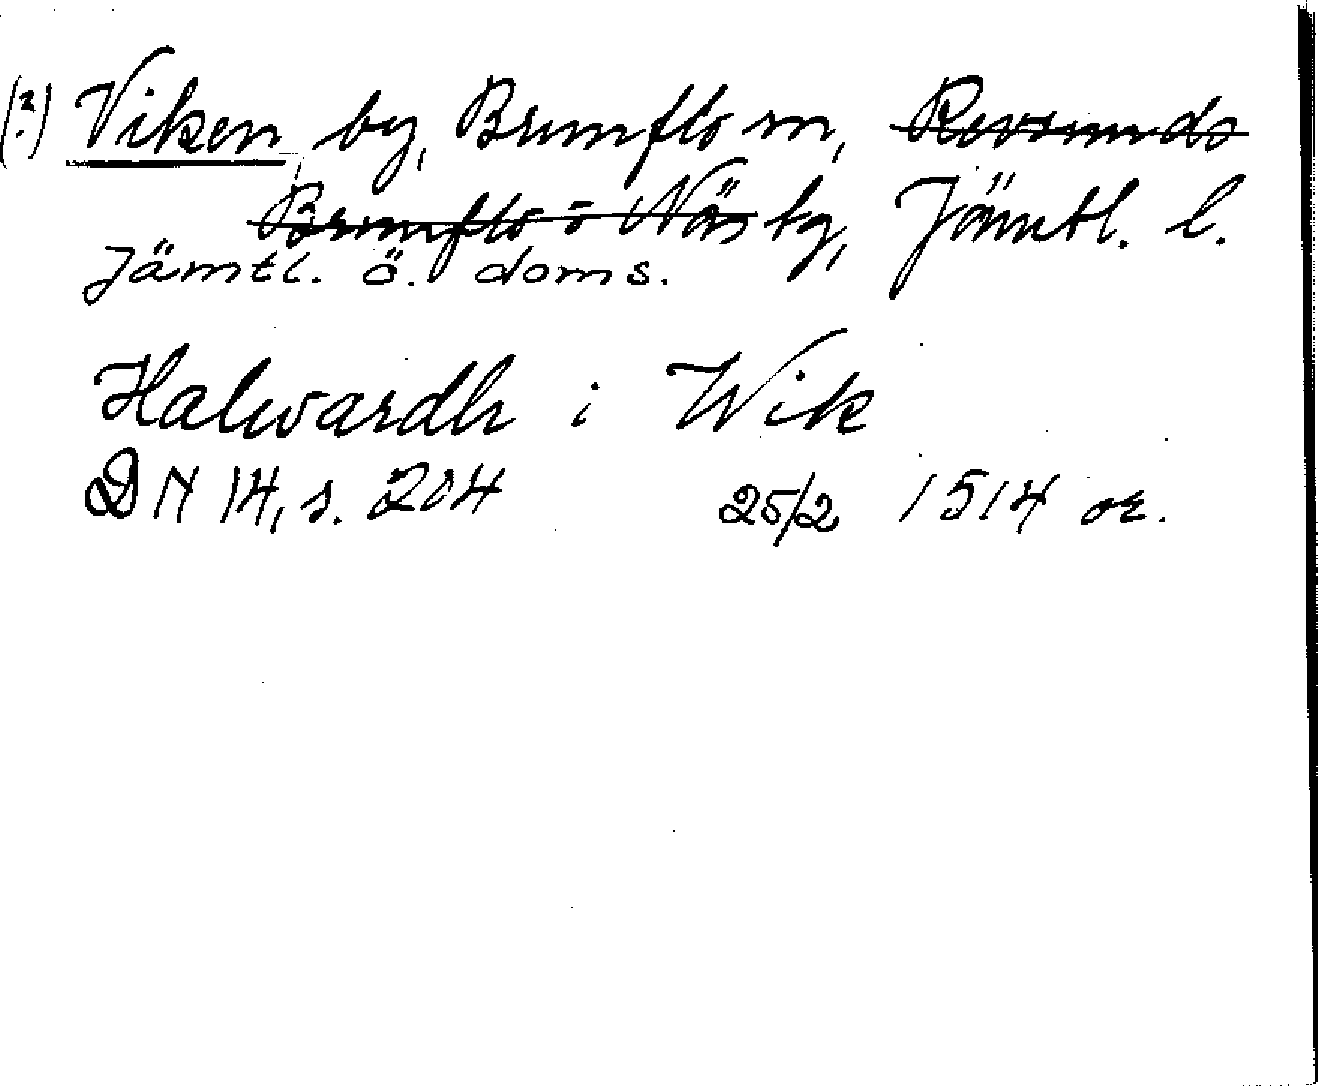 (?) Viken, by, Brunflo sn, Revsunds
Brunflo o Näs tg, Jämtl. l.
Jämtl. ö. doms.
Halwardh i Wik
DN 14, s. 204 25/2 1514 or.